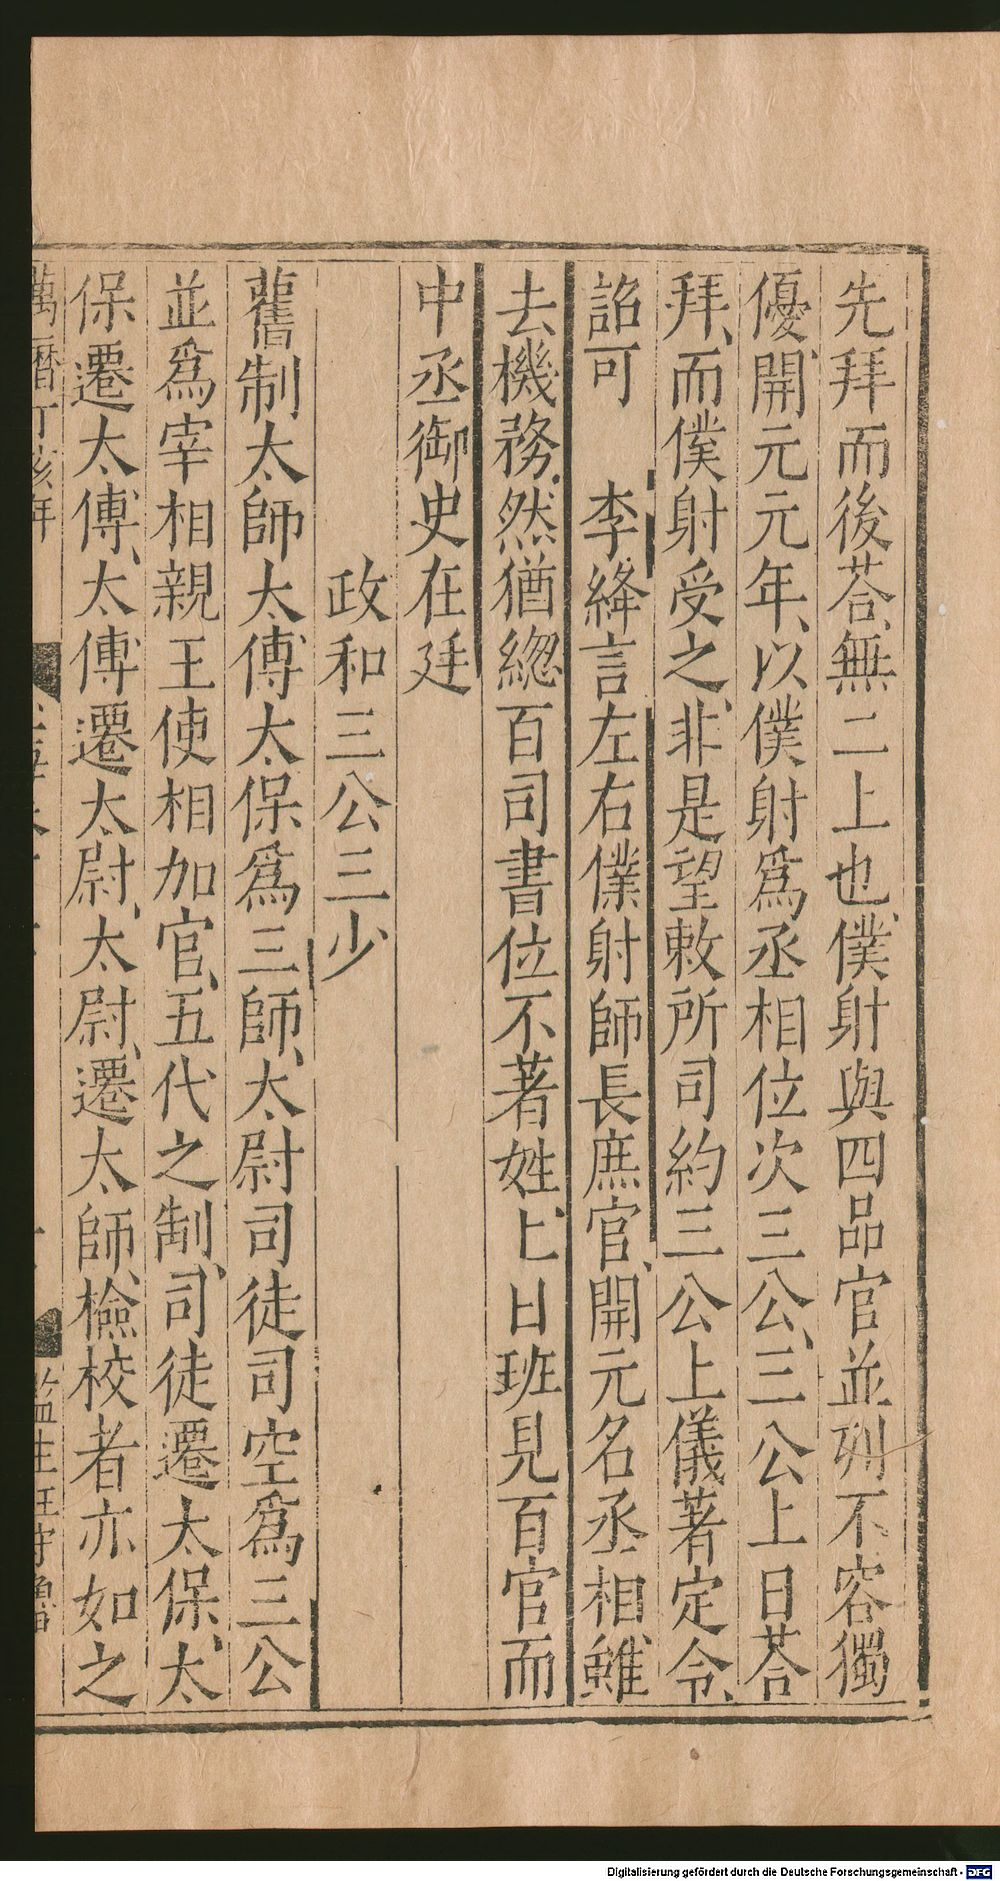 先拜而後荅、無二上也、僕射與四品官並列不容獨
優、開元元年、以僕射爲丞相位次三公、三公上日荅
拜、而僕射受之、非是望敕所司約三公上儀著定令、
詔可　李絳言左右僕射師長庶官、開元名丞相、雖
去機務、然猶緫百司書位不著姓、上日班見百官而
中丞御史在廷
政和三公三少
舊制太師太傅太保爲三師、太尉司徒司空爲三公
並爲宰相親王使相加官、五代之制、司徒遷太保、太
保遷太傅、太傅遷太尉、太尉、遷太師、檢校者亦如之
萬曆丁亥年
監生
Digitalisierung gefördert durch die Deutsche Forschungsgemeinschaft - DFG